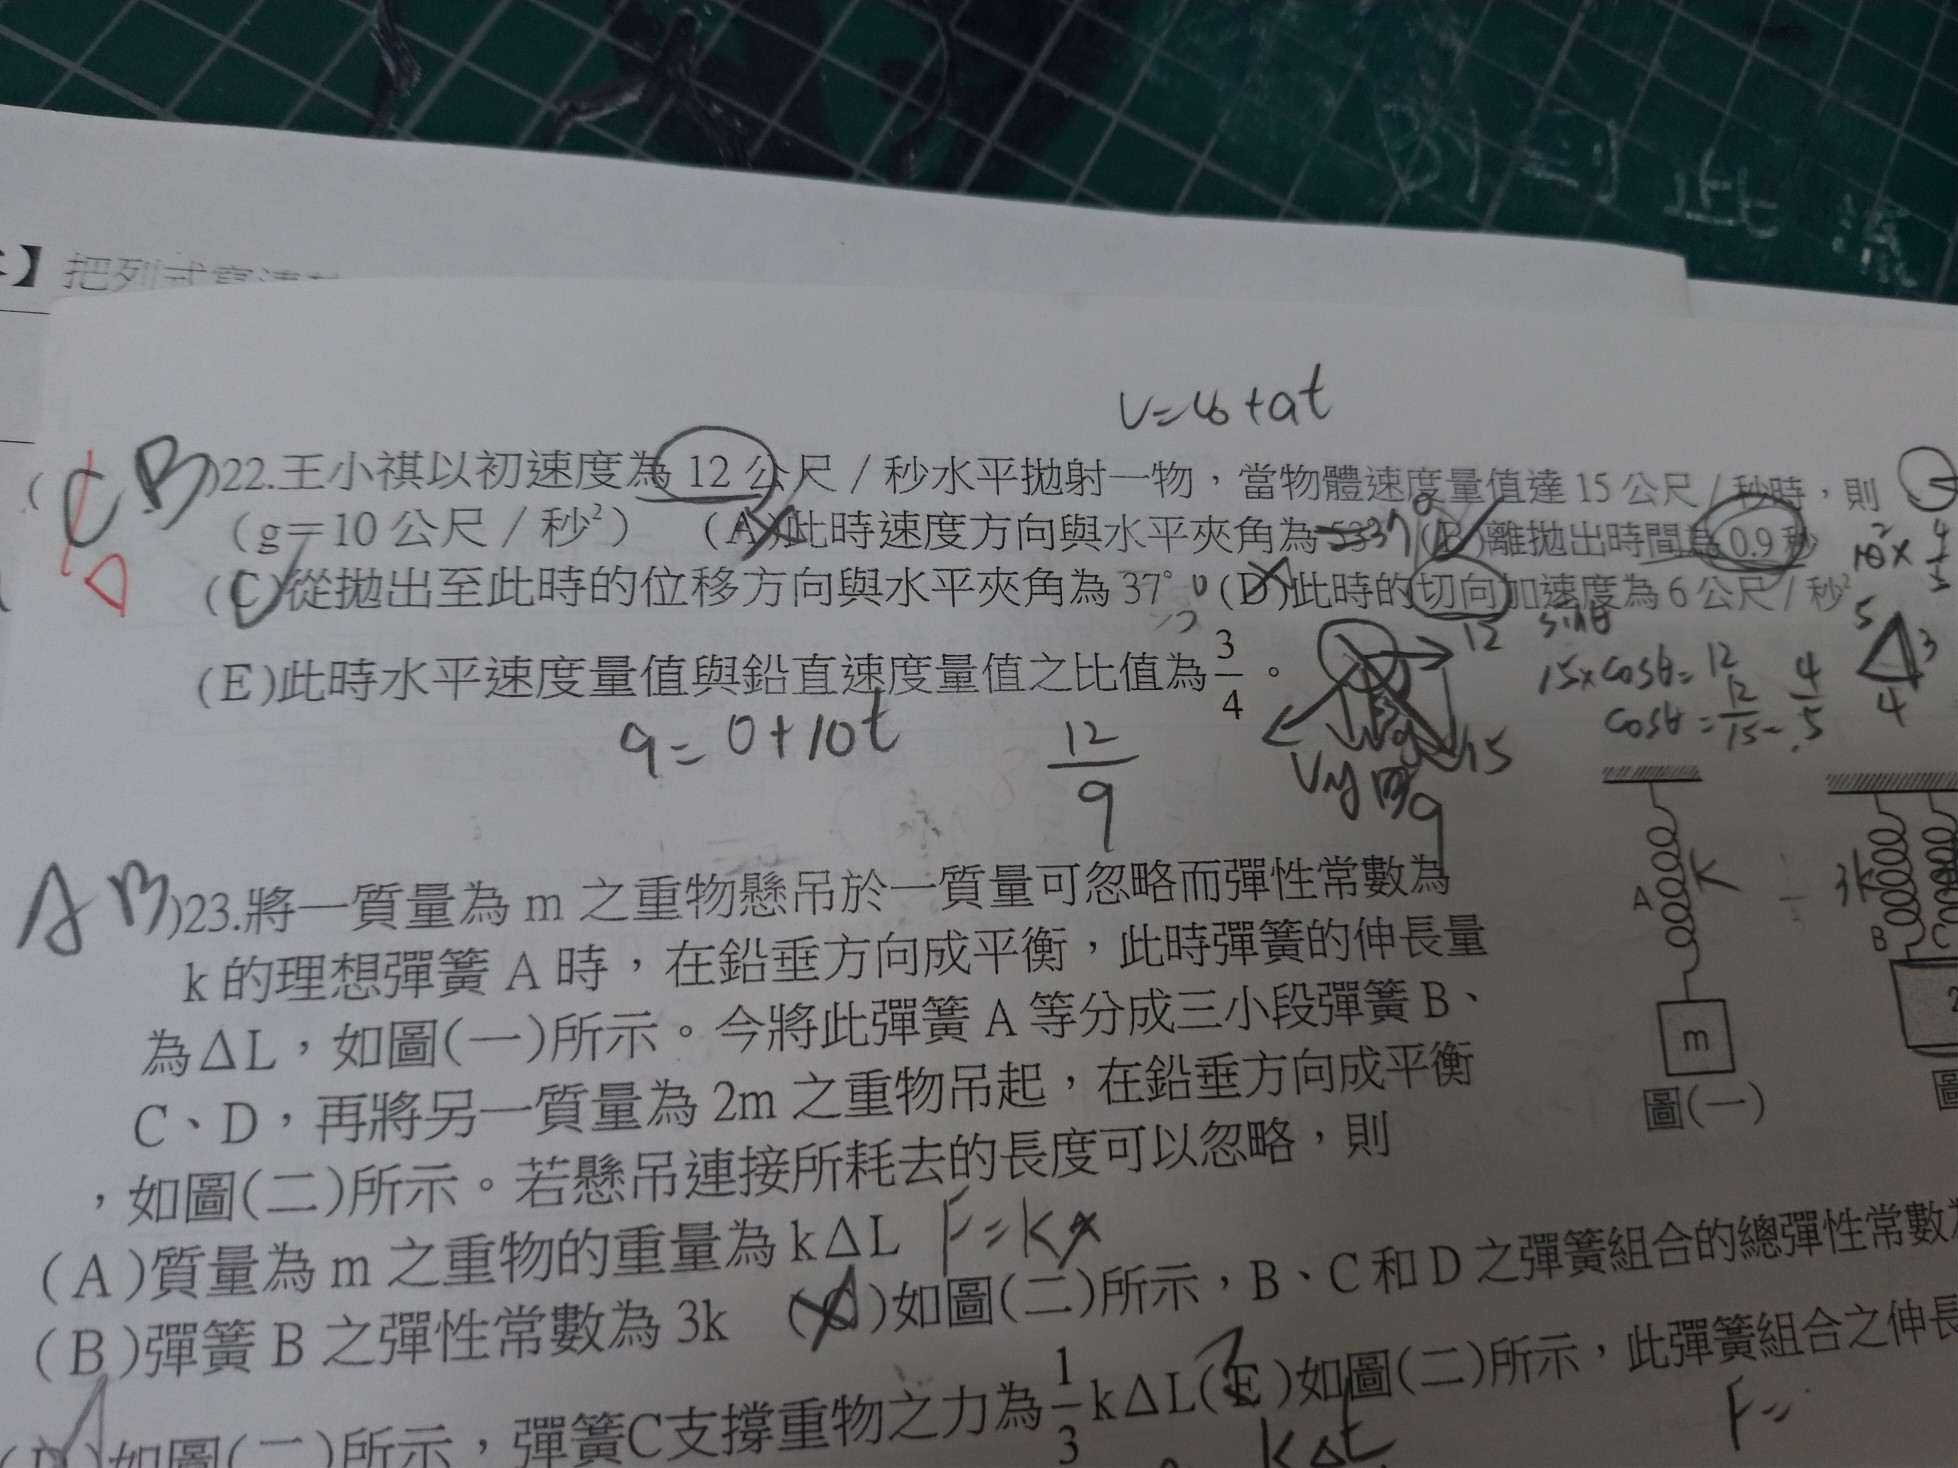 】把列式寫清楚
V=V₀+at
CB)22.王小祺以初速度為 12 公尺／秒水平拋射一物，當物體速度量值達 15 公尺／秒時，則
D
(g＝10 公尺／秒²) (A)此時速度方向與水平夾角為 53° 37° (B)離拋出時間為 0.9 秒
(C)從拋出至此時的位移方向與水平夾角為 37° (D)此時的切向加速度為 6 公尺／秒²
(E)此時水平速度量值與鉛直速度量值之比值為 3/4 。
12
sinθ
15×cosθ=12
cosθ=12/15=4/5
5
3
4
9=0+10t
12/9
Vy
15
9
AB)23.將一質量為 m 之重物懸吊於一質量可忽略而彈性常數為
k 的理想彈簧 A 時，在鉛垂方向成平衡，此時彈簧的伸長量
為ΔL，如圖(一)所示。今將此彈簧 A 等分成三小段彈簧 B、
C、D，再將另一質量為 2m 之重物吊起，在鉛垂方向成平衡
，如圖(二)所示。若懸吊連接所耗去的長度可以忽略，則
A
K
m
圖(一)
3k
B
C
2
圖
(A)質量為 m 之重物的重量為 kΔL F=kx
(B)彈簧 B 之彈性常數為 3k (C)如圖(二)所示，B、C 和 D 之彈簧組合的總彈性常數為
(D)如圖(二)所示，彈簧C支撐重物之力為 1/3 kΔL(E)如圖(二)所示，此彈簧組合之伸長
F=